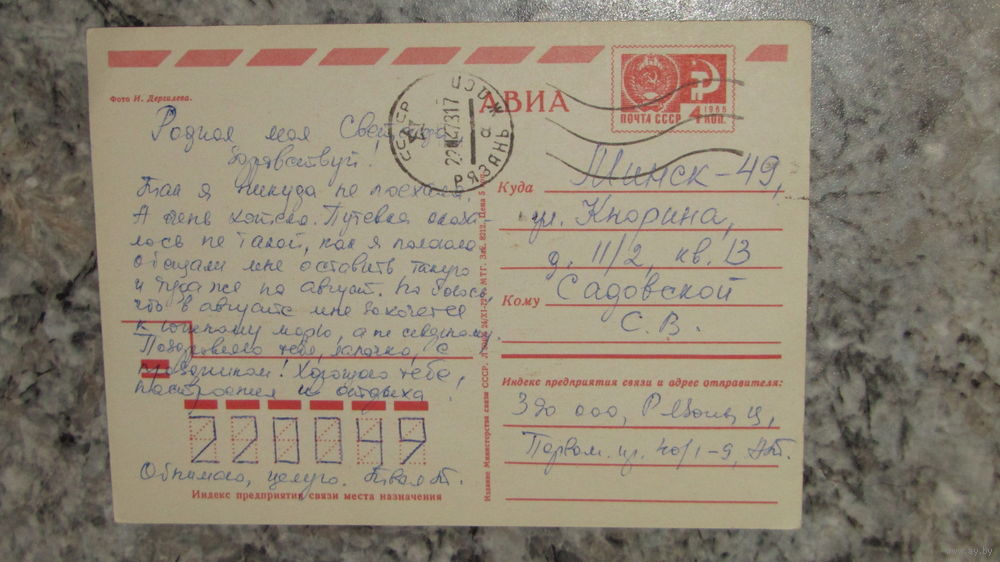 Фото И. Дергилева.
АВИА
ПОЧТА СССР
1966
4 КОП.
СССР РЯЗАНЬ
Родная моя
Здравствуй!
Так я никуда не поехала.
А очень хотела. Путевка оказа-
лась не такой, как я полагала
Обещали мне оставить такую
и туда же на август. Но боюсь,
что в августе мне захочется
к южному морю, а не северному.
Поздравляю тебя, лапочка, с
праздником! Хорошего тебе,
настроения и отдыха
220049
Обнимаю, целую. Твоя Т.
Индекс предприятия связи места назначения
Издание Министерства связи СССР.
Куда Минск-49,
ул. Кнорина,
д. 11/2, кв. 13
Кому Садовской
С. В.
Индекс предприятия связи и адрес отправителя:
390 000, Рязань,
Первом. 40/1-9,
www.ay.by